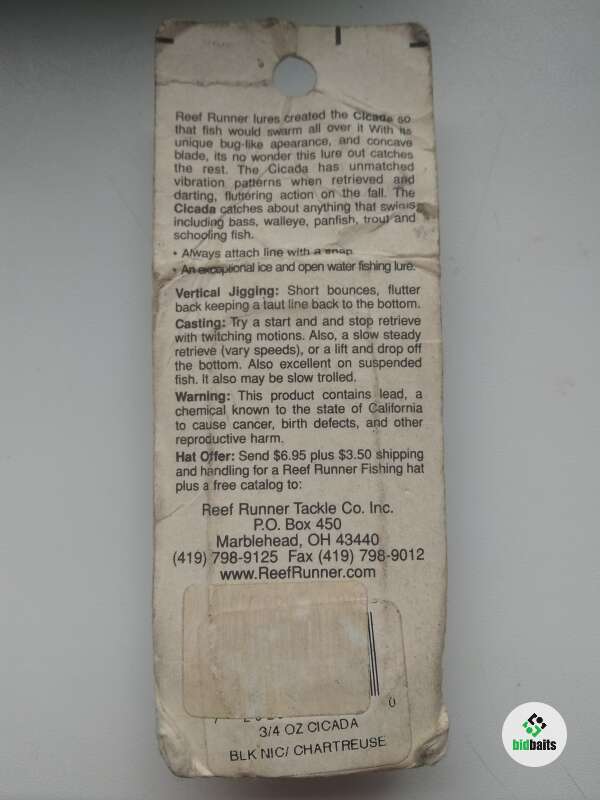 Reef Runner lures created the Cicada so
that fish would swarm all over it With its
unique bug-like apearance, and concave
blade, its no wonder this lure out catches
the rest. The Cicada has unmatched
vibration patterns when retrieved and
darting, fluttering action on the fall. The
Cicada catches about anything that swims
including bass, walleye, panfish, trout and
schooling fish.
• Always attach line with a snap.
• An exceptional ice and open water fishing lure.
Vertical Jigging: Short bounces, flutter
back keeping a taut line back to the bottom.
Casting: Try a start and and stop retrieve
with twitching motions. Also, a slow steady
retrieve (vary speeds), or a lift and drop off
the bottom. Also excellent on suspended
fish. It also may be slow trolled.
Warning: This product contains lead, a
chemical known to the state of California
to cause cancer, birth defects, and other
reproductive harm.
Hat Offer: Send $6.95 plus $3.50 shipping
and handling for a Reef Runner Fishing hat
plus a free catalog to:
Reef Runner Tackle Co. Inc.
P.O. Box 450
Marblehead, OH 43440
(419) 798-9125 Fax (419) 798-9012
www.ReefRunner.com
0
3/4 OZ CICADA
BLK NIC/ CHARTREUSE
bidbaits